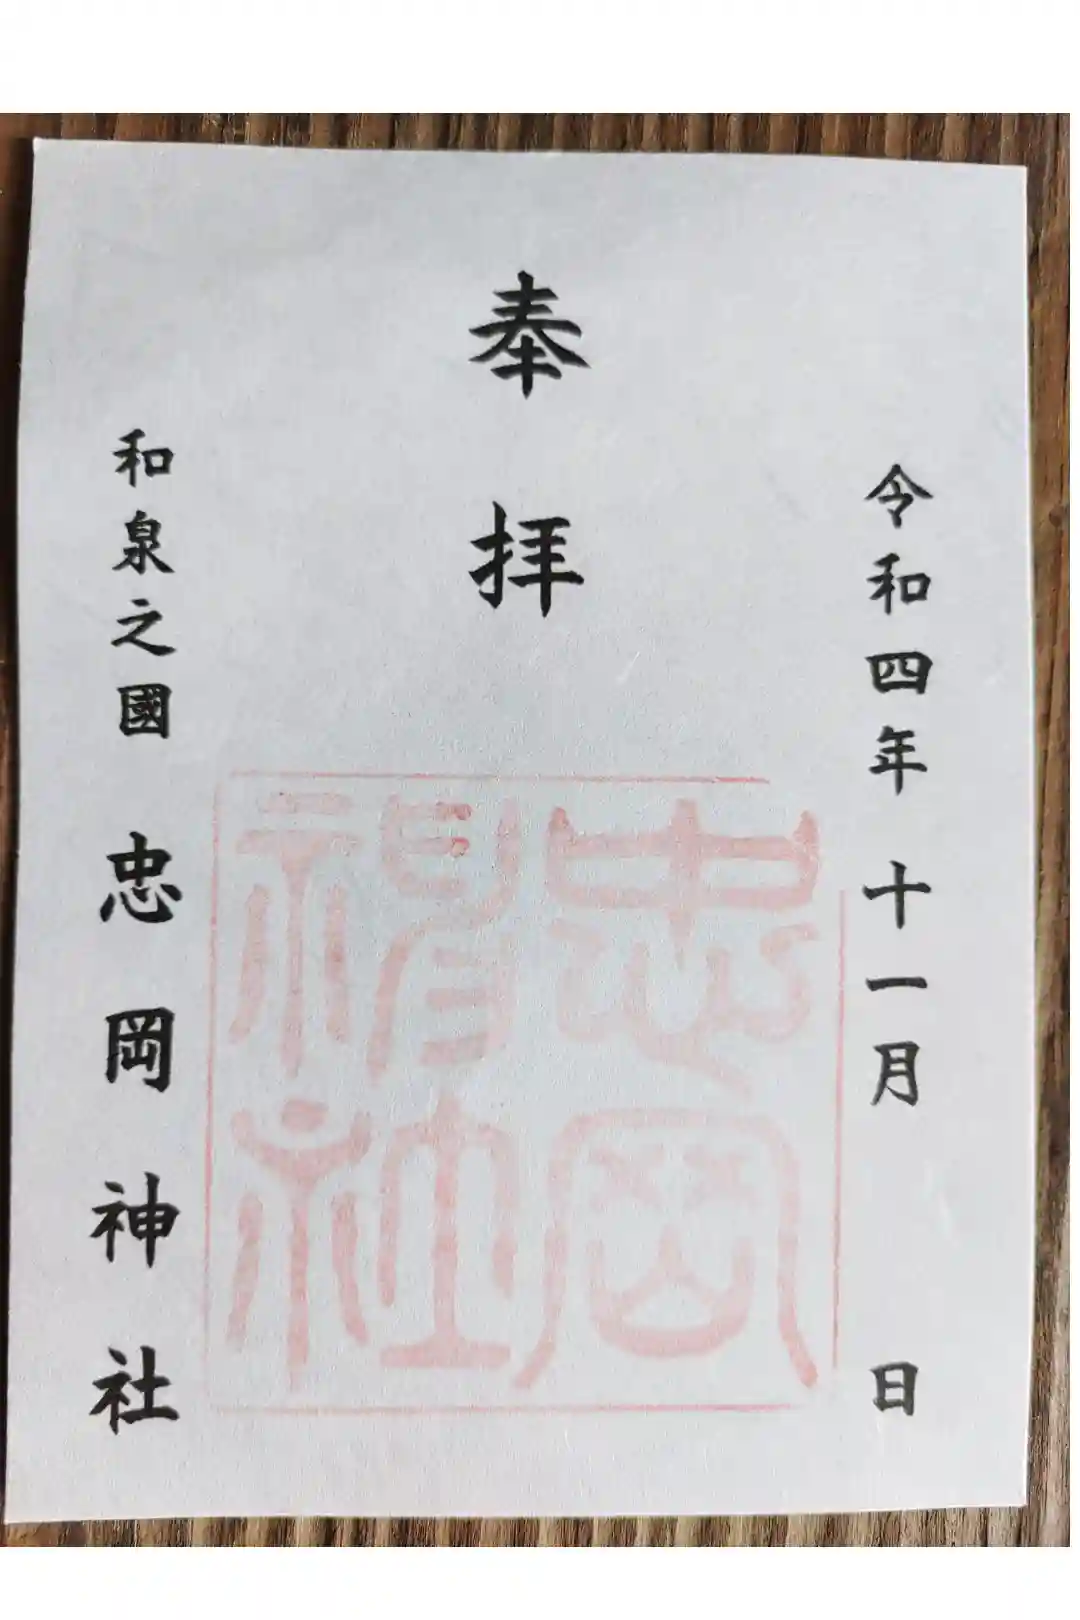 令和四年十一月 日
奉拝
忠岡神社
和泉之國 忠岡神社